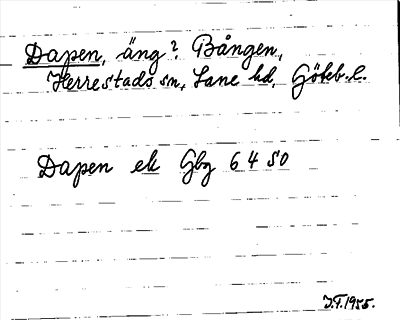 Dapen, äng? Bången,
Herrestads sn, Lane hd, Göteb. l.
Dapen ek Gbg 6450
J.F. 1955.